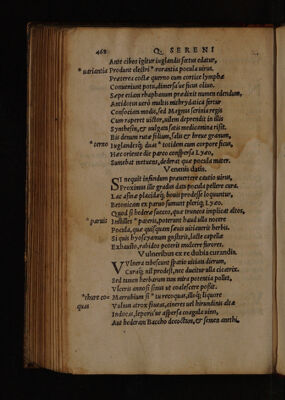 468 Q. SERENI
Ante cibos igitur iuglandis fœtus edatur,
*uariantia Produnt electri * rorantia pocula uirus.
Præterea coctæ querno cum cortice lymphæ
Conueniunt potu, diuersa ue ficus oliuo.
Sæpe etiam rhaphanum prædixit numen edendum,
Antidotus uerò multis mithrydatica fertur
Consociata modis, sed Magnus scrinia regis
Cum raperet uictor, uilem deprendit in illis
Synthesin, & uulgata satis medicamina risit.
Bis denum rutæ folium, salis & breue granum,
*terno Iuglandesq; duas * totidem cum corpore ficus,
Hæc oriente die parco conspersa Lyæo,
Sumebat metuens, dederat quæ pocula mater.
Venenis datis.
SI nequit infidum præuertere cautio uirus,
Proximus ille gradus dato pocula pellere cura.
Lac asinæ placidæq; bouis prodesse loquuntur,
Betonicam ex paruo sumunt plerique Lyæo.
Quod si hederæ succos, quæ truncos implicat altos,
*paruis Infuses * pateris, poterunt haud ulla nocere
Pocula, quæ quisquam sæuis uitiauerit herbis.
Si quis hyoscyamum gustarit, lacte capellæ
Exhausto, rabidos poterit mulcere furores.
Vulneribus ex re dubia curandis.
VVlnera tabescunt spatio uitium dierum,
Curaq; nil prodest, nec ducitur ulla cicatrix.
Sed tamen herbarum uis mira potenter pollet,
Vlceris annosi sinus ut coalescere possit.
*thure co Marrubium si * tu recoquas, illoq; liquore
quas Vulnus atrox foueas, cineres uel hirundinis altæ
Inducas, leporis ue aspersa coagula uino,
Aut hederam Baccho decoctam, & semen anethi.